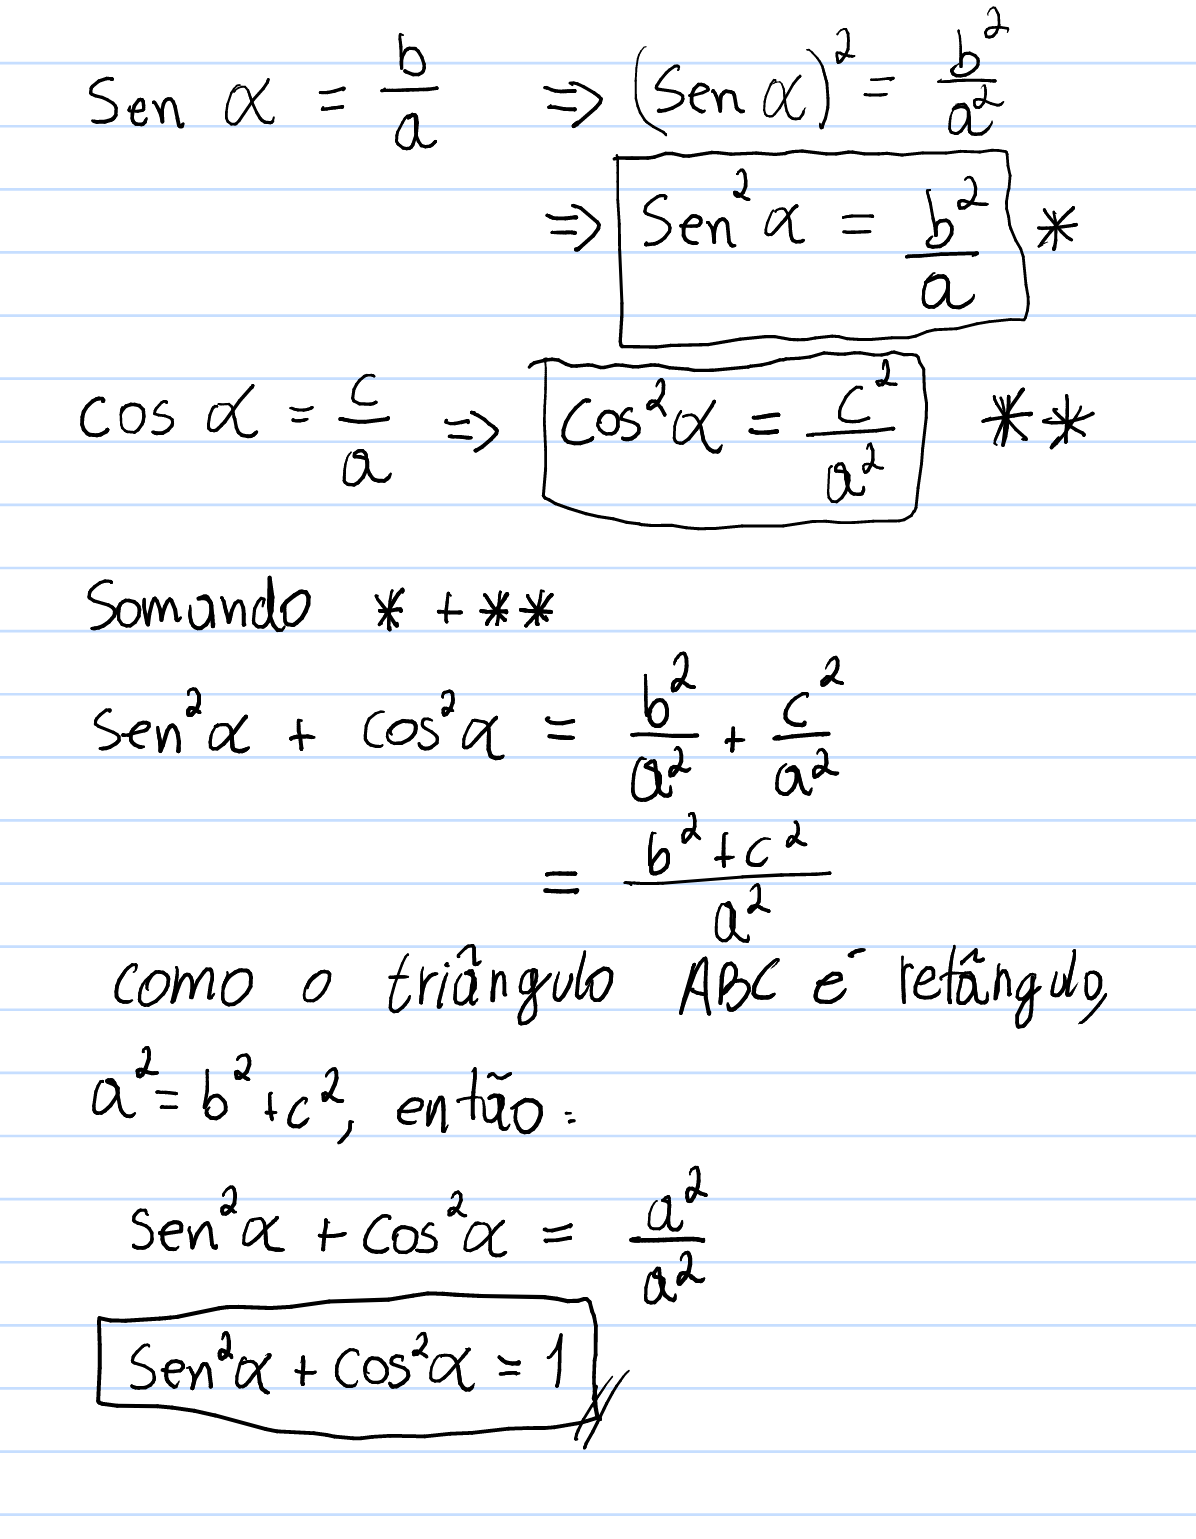 Sen α = b/a ⇒ (Sen α)² = b²/a²
⇒ Sen²α = b²/a *
cos α = c/a ⇒ cos²α = c²/a² **
Somando * + **
Sen²α + cos²α = b²/a² + c²/a²
= b²+c²/a²
como o triângulo ABC é retângulo,
a² = b²+c², então:
Sen²α + cos²α = a²/a²
Sen²α + cos²α = 1